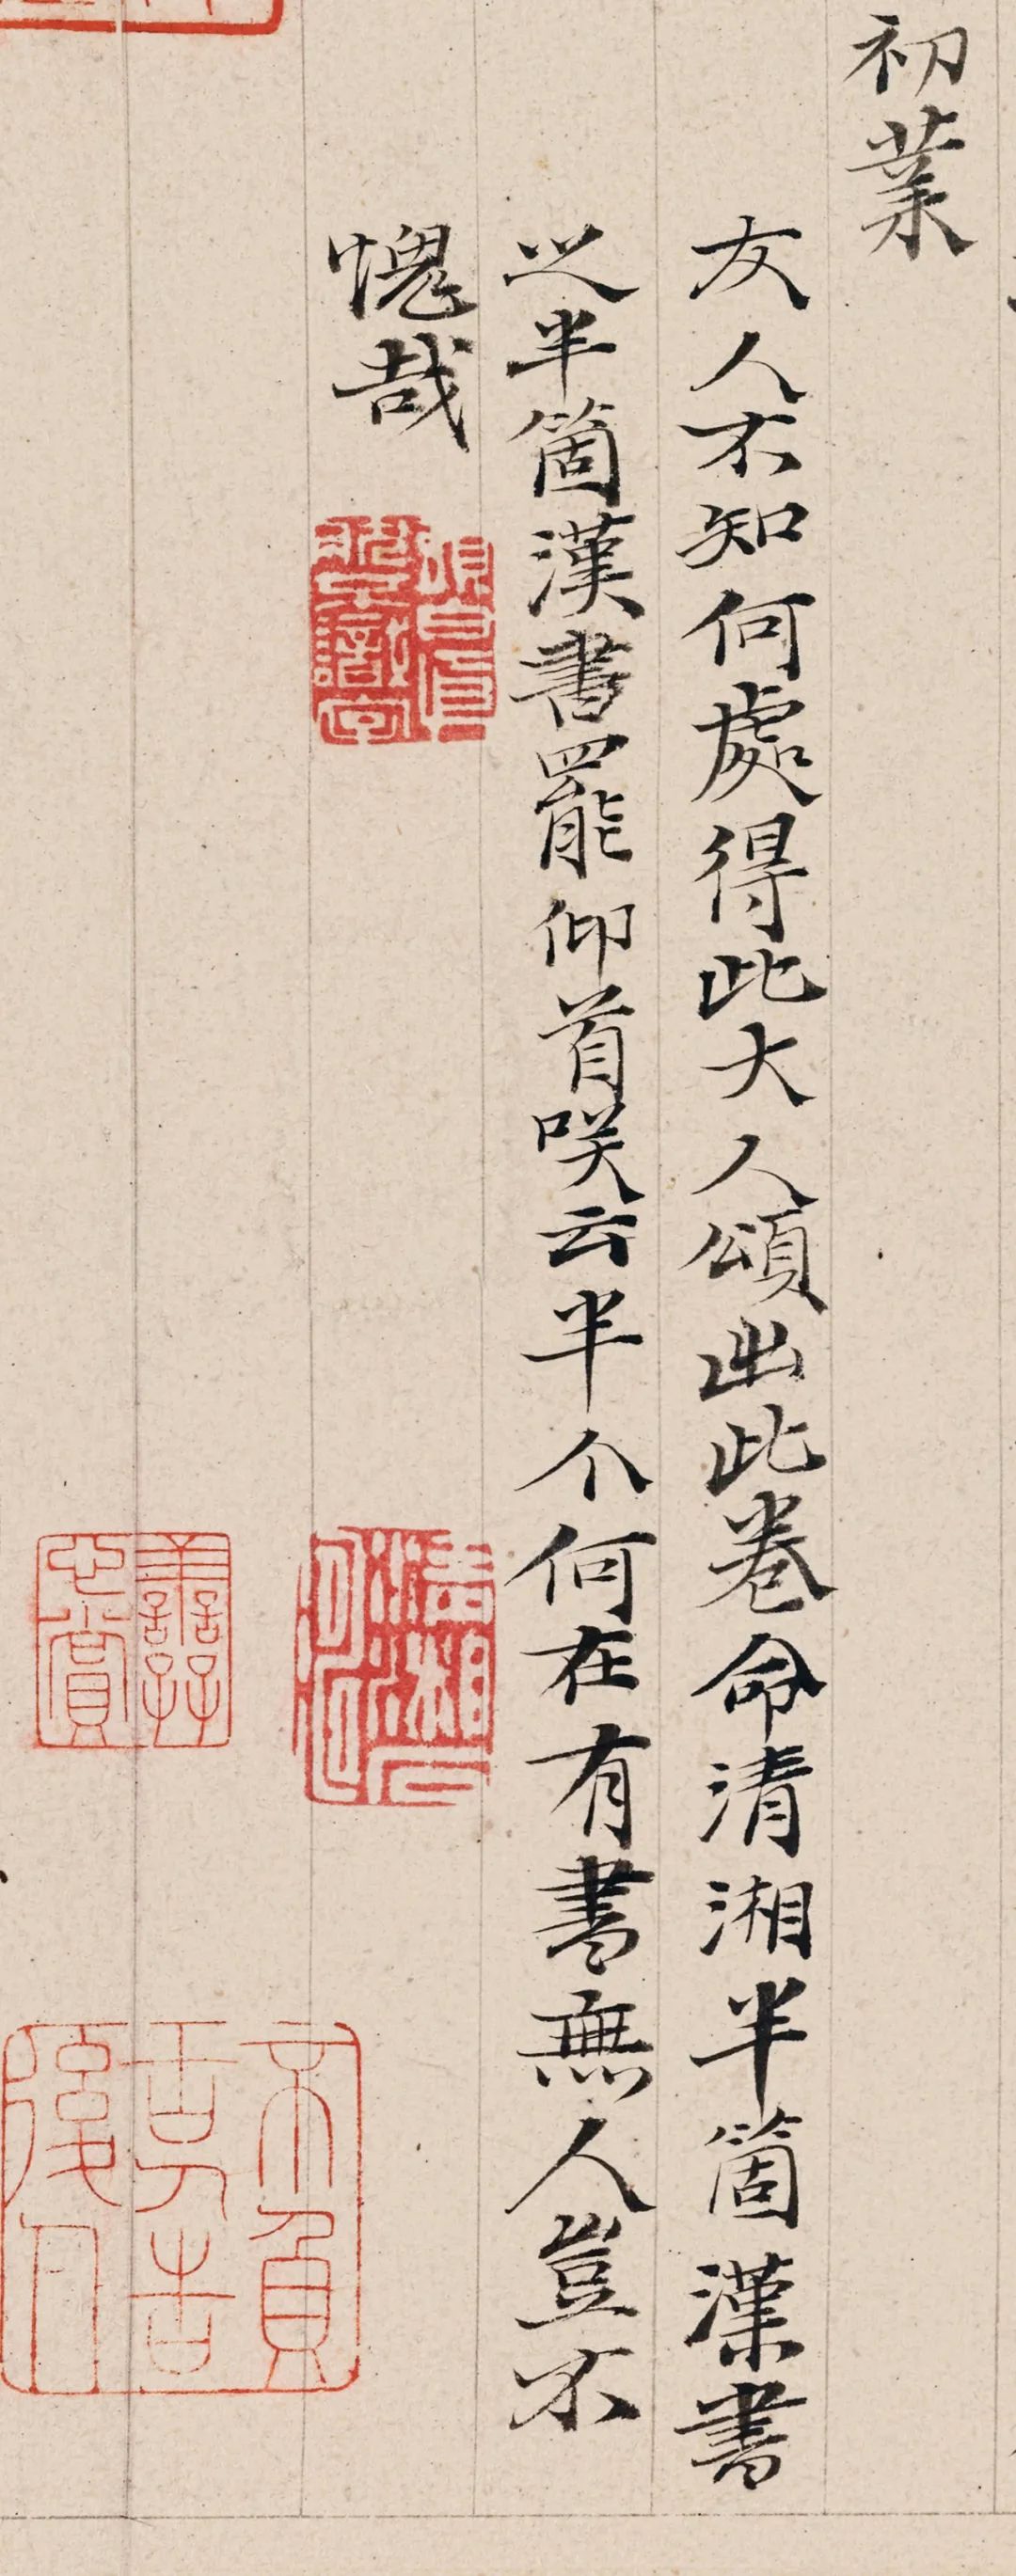 初業
友人不知何處得此大人頌出此卷命清湘半箇漢書
之半箇漢書罷仰首咲云半个何在有書無人豈不
愧哉